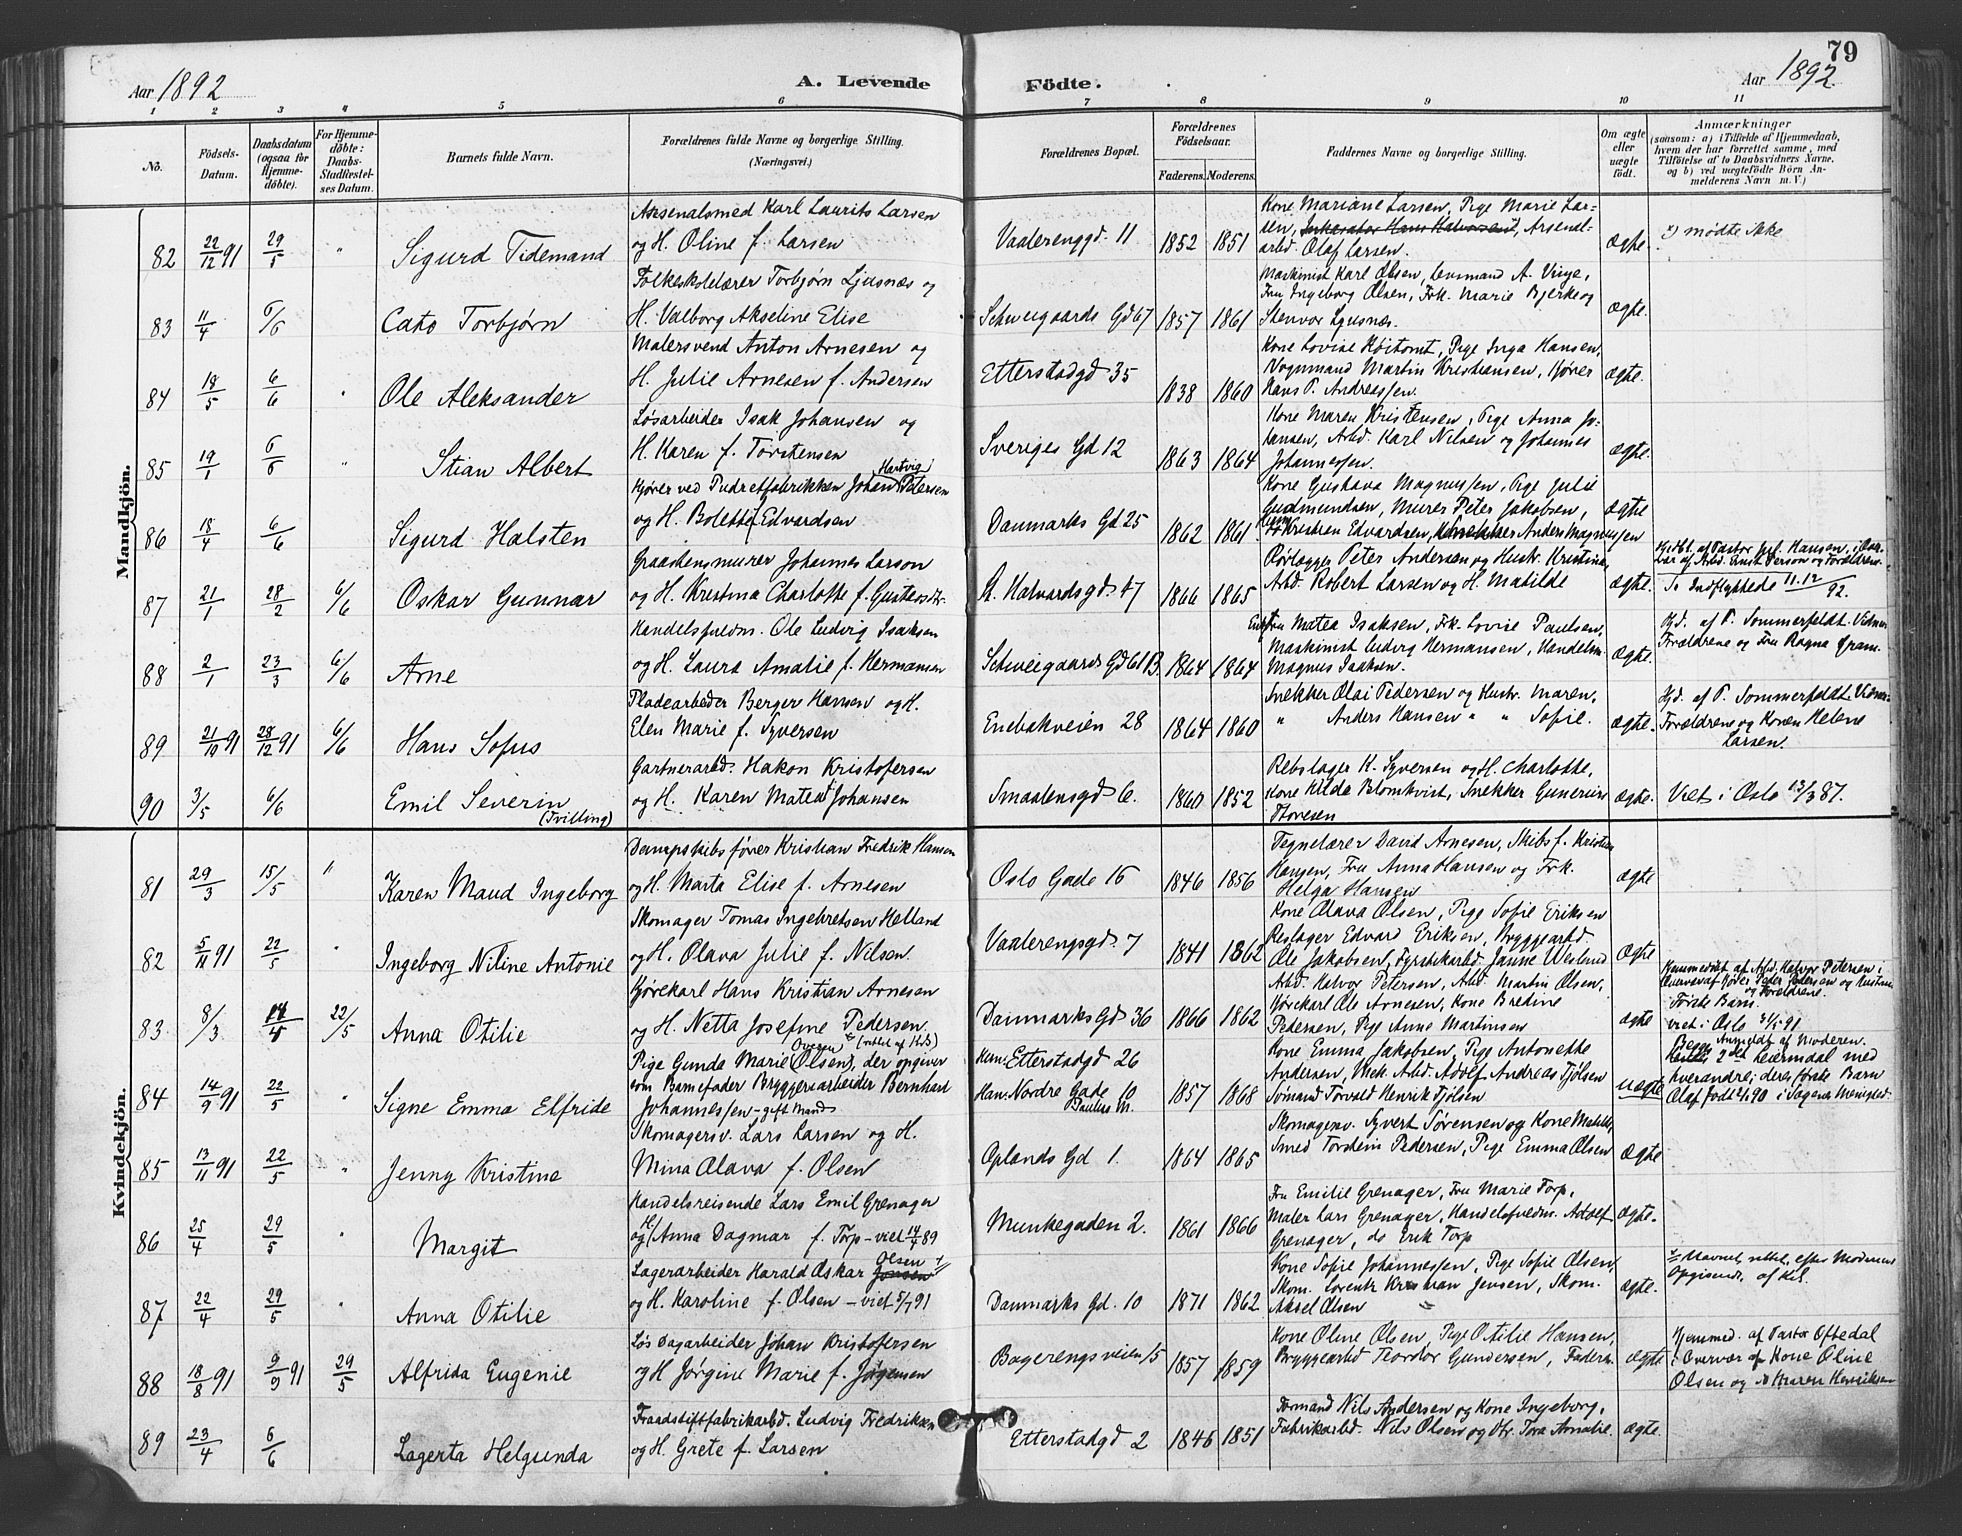 79
Aar 1892 A. Levende Födte. Aar 1892
1 2 3 4 5 6 7 8 9 10 11
No.
Födsels-Datum.
Daabsdatum (ogsaa for Hjemmedöbte).
For Hjemmedöbte: Daabs-Stadfæstelses Datum.
Barnets fulde Navn.
Forældrenes fulde Navne og borgerlige Stilling. (Næringsvei.)
Forældrenes Bopæl.
Forældrenes Födselsaar.
Faderens. Moderens.
Faddernes Navne og borgerlige Stilling.
Om ægte eller uægte födt.
Anmærkninger
(saasom: a) i Tilfælde af Hjemmedaab, hvem der har forrettet samme, med Tilföielse af to Daabsvidners Navne, og b) ved uægtefödte Börn Anmelderens Navn m. V.)
Mandkjön.
82 22/12 91 29/5 " Sigurd Tidemand
Arsenalsmed Karl Laurits Larsen
og H. Oline f. Larsen
Vaalerenggd. 11 1852 1851
Kone Mariane Larsen, Pige Marie Lar-
sen, Inkasator Hans Halvorsen x), Arsenal-
arbd. Olaf Larsen.
ægte. x) mødte ikke
83 11/4 6/6 Cato Torbjørn
Folkeskolelærer Torbjørn Ljusnæs og
H. Valborg Akseline Elise
Schweigaards Gd 67 1857 1861
Maskinist Karl Olsen, Lensmand A. Vinje,
Fru Ingeborg Olsen, Frk. Marie Bjerke og
Stenvor Ljusnæs.
ægte.
84 18/5 6/6 " Ole Aleksander
Malersvend Anton Arnesen og
H. Julie Arnesen f. Andersen
Etterstadgd 35 1838 1860
Kone Lovise Høitomt, Pige Inga Hansen,
Vognmand Martin Kristiansen, Kjører
Hans P. Andreassen.
ægte.
85 19/1 6/6 " Stian Albert
Løsarbeider Isak Johansen og
H. Karen f. Torstensen
Sveriges Gd 12 1863 1864
Kone Maren Kristensen, Pige Anna Jo-
hansen, Arbd. Karl Nilsen og Johannes
Johannessen.
ægte.
86 18/4 6/6 Sigurd Halsten
Kjører ved Pudretfabrikken Johan Hartvig Petersen
og H. Bolette f. Edvardsen
Danmarks Gd 25 1862 1861
Kone Gustava Magnussen, Pige Julie
Gudmundsen, Murer Peter Jakobsen,
Kristian Edvardsen, Anders Magnussen
ægte
87 21/1 28/2 6/6 Oskar Gunnar
Graastensmurer Johannes Larson
og H. Kristina Charlotte f. Gustavsdtr.
St. Halvardsgd. 47 1866 1865
Rørlægger Peter Andersen og Hustr. Kristina,
Arbd. Robert Larsen og H. Matilde
ægte.
Hansen, i Over-
vær af Arbd. Ernst Person og Forældrene.
To Indflyttede 11.12/92.
88 2/1 23/3 6/6 Arne
Handelsfuldm. Ole Ludvig Isaksen
og H. Laura Amalie f. Hermansen
Schweigaards Gd 61 B. 1864 1864
Enkefru Matea Isaksen, Frk. Lovise Paulsen,
Maskinist Ludvig Hermansen, Handelsm.
Magnus Isaksen.
ægte.
Hjd. af P. Sommerfeldt. Vidner:
Forældrene og Fru Ragna Gram.
89 21/10 91 28/12 91 6/6 Hans Sofus
Pladearbeider Berger Hansen og H.
Elen Marie f. Syversen
Enebakveien 28 1864 1860
Snekker Olai Pedersen og Hustr. Maren,
" Anders Hansen " " Sofie.
ægte.
Hjd. af P. Sommerfeldt. Vidner:
Forældrene og Konen Helene
Larsen.
90 3/5 6/6 Emil Severin (Tvilling)
Gartnerarbd. Hakon Kristofersen
og H. Karen Matea f. Johansen
Smaalensgd 6. 1860 1852
Rebslager K. Syversen og H. Charlotte,
Kone Hilda Blomkvist, Snekker Gunerius
Thoresen
ægte. Viet i Oslo 13/3 87.
Kvindekjön.
81 29/3 15/5 " Karen Maud Ingeborg
Dampskibsfører Kristian Fredrik Hansen
og H. Marta Elise f. Arnesen
Oslo Gade 16 1846 1856
Tegnelærer David Arnesen, Skibsf. Kristian
Hansen, Fru Anna Hansen og Frk.
Helga Hansen
ægte
82 5/11 91 22/5 " Ingeborg Niline Antonie
Skomager Tomas Ingebretsen Helland
og H. Olava Julie f. Nilsen.
Vaalerengsgd. 7 1841 1862
Kone Olava Olsen, Pige Sofie Eriksen
Reslager Edvard Eriksen, Byggearbd
Ole Jakobsen, Fyrstikarbd. Janne Weslund
ægte
83 8/3 14/4 22/5 Anna Otilie
Kjørekarl Hans Kristian Arnesen
og H. Netta Josefine Pedersen
Danmarks Gd 36 1866 1862
Arbd. Halvor Petersen, Arbd. Martin Olsen,
Kjørekarl Ole Arnesen, Kone Bredine
Pedersen, Pige Anne Martinsen
ægte
Hjemmedøbt af Arbd. Halvor Petersen i
Overvær af Kjører Peder Pedersen og Hustru
og Forældrene.
Første Barn.
viet i Oslo 31/5 91
84 14/9 91 22/5 " Signe Emma Elfride
Pige Gunda Marie Olsen), der opgiver
som Barnefader Bryggeriarbeider Bernhart
Johannessen - gift Mand
Hun: Etterstadgd 26
Han: Nordre Gade 10
Paulus M.
1857 1868
Kone Emma Jakobsen, Pige Antonette
Andersen, Mek. Arbd. Adolf Andreas Fjølsen
Sømand Torvald Henrik Fjølsen
uægte
Anmeldt af Moderen.
Begges 2det Leiermaal med
hverandre; deres første Barn
Olaf født 2/1 90 i Sagenes Menighed.
85 13/11 91 22/5 " Jenny Kristine
Skomagersv. Lars Larsen og H.
Mina Olava f. Olsen
Oplands Gd 1. 1864 1865
Skomagersv. Syvert Sørensen og Kone Matilde,
Smed Torstein Pedersen, Pige Emma Olsen
ægte
86 25/4 29/5 " Margit
Handelsreisende Lars Emil Grenager
og H. Anna Dagmar f. Torp - viet 14/4 89
Munkegaden 2. 1861 1866
Fru Emilie Grenager, Fru Marie Torp,
Maler Lars Grenager, Handelsfuldm. Adolf
Grenager, do Erik Torp
ægte.
87 22/4 29/5 " Anna Otilie
Lagerarbeider Harald Oskar Jonsen Olsen x)
og H. Karoline f. Olsen - viet 5/7 91
Danmarks Gd. 10 1871 1862
Kone Sofie Johannessen, Pige Sofie Olsen
Skom. Lorentz Kristian Jensen, Skom.
Aksel Olsen
ægte.
x) Navnet rettet efter Moderens
Opgivende
88 18/8 91 9/9 91 29/5 Alfrida Eugenie
Løs Dagarbeider Johan Kristofersen
og H Jørgine Marie f. Jørgensen
Bøgerengsveien 15 1857 1859
Kone Oline Olsen, Pige Otilie Hansen,
Byggearbd Teordor Gundersen, Faderen
ægte
Hjemmed. af Pastor Oftedal
i Overvær af Kone Oline
Olsen og Maren Henriksen
89 23/4 6/6 Lagerta Helgunda
Traadstiftfabrikarbd. Ludvig Fredriksen
og H. Grete f. Larsen
Etterstadgd 2 1846 1851
Formand Nils Andersen og Kone Ingeborg,
Fabrikarbd. Nils Olsen og Dtr. Tora Amalie.
ægte.